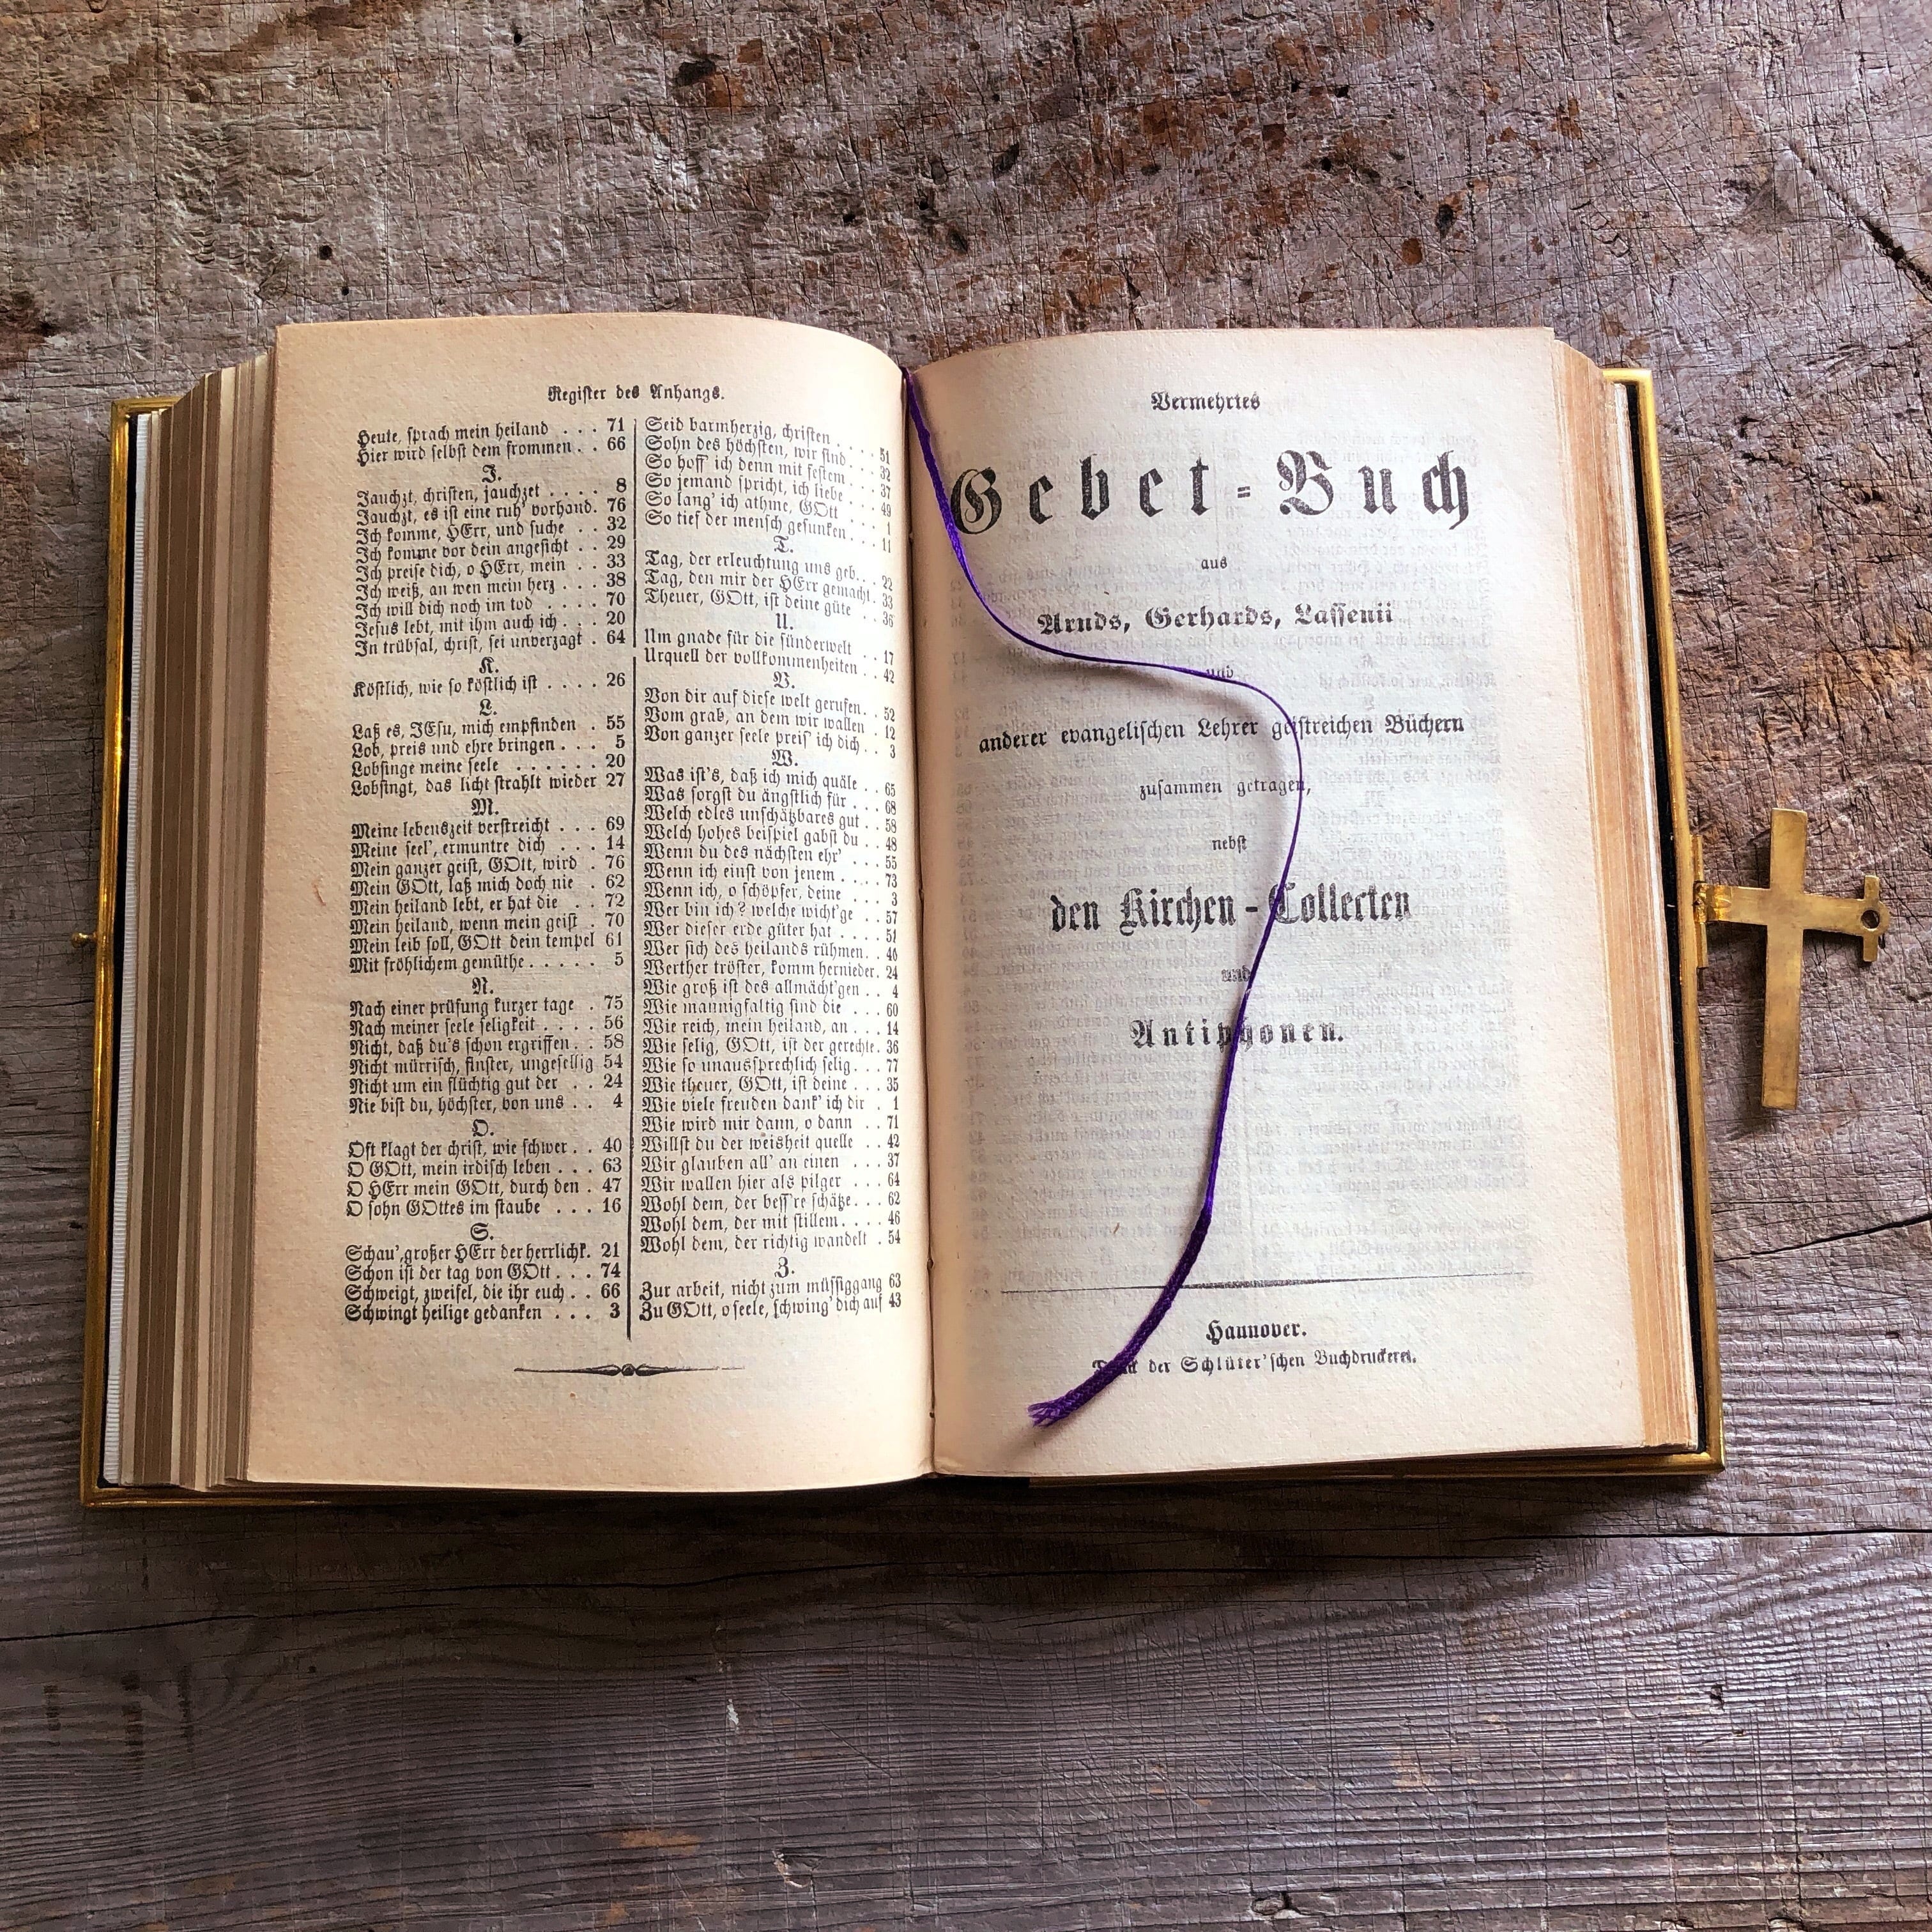 Register des Anhangs.
Heute, sprach mein heiland . . . 71
Hier wird selbst dem frommen . . 66
J.
Jauchzt, christen, jauchzet . . . . 8
Jauchzt, es ist eine ruh' vorhand. 76
Ich komme, HErr, und suche . . 32
Ich komme vor dein angesicht . . 29
Ich preise dich, o HErr, mein . . 33
Ich weiß, an wen mein herz . . 38
Ich will dich noch im tod . . . . 70
Jesus lebt, mit ihm auch ich . . 20
In trübsal, christ, sei unverzagt . 64
K.
Köstlich, wie so köstlich ist . . . . 26
L.
Laß es, JEsu, mich empfinden . 55
Lob, preis und ehre bringen . . . 5
Lobsinge meine seele . . . . . . 20
Lobsingt, das licht strahlt wieder 27
M.
Meine lebenszeit verstreicht . . . 69
Meine seel', ermuntre dich . . . 14
Mein ganzer geist, GOtt, wird . 76
Mein GOtt, laß mich doch nie . 62
Mein heiland lebt, er hat die . . 72
Mein heiland, wenn mein geist . 70
Mein leib soll, GOtt dein tempel 61
Mit fröhlichem gemüthe . . . . . 5
N.
Nach einer prüfung kurzer tage . 75
Nach meiner seele seligkeit . . . . 56
Nicht, daß du's schon ergriffen . . 58
Nicht mürrisch, finster, ungesellig 54
Nicht um ein flüchtig gut der . . 24
Nie bist du, höchster, von uns . . 4
O.
Oft klagt der christ, wie schwer . . 40
O GOtt, mein irdisch leben . . . 63
O HErr mein GOtt, durch den . 47
O sohn GOttes im staube . . . 16
S.
Schau', großer HErr der herrlichk. 21
Schon ist der tag von GOtt . . . 74
Schweigt, zweifel, die ihr euch . . 66
Schwingt heilige gedanken . . . 3
Seid barmherzig, christen . . . . 51
Sohn des höchsten, wir sind . . . 32
So hoff' ich denn mit festem . . . 37
So jemand spricht, ich liebe . . . 49
So lang' ich athme, GOtt . . . 1
So tief der mensch gesunken . . . 11
T.
Tag, der erleuchtung uns geb. . . 22
Tag, den mir der HErr gemacht . 33
Theuer, GOtt, ist deine güte . . 36
U.
Um gnade für die sünderwelt . . 17
Urquell der vollkommenheiten . . 42
V.
Von dir auf diese welt gerufen . . 52
Vom grab, an dem wir wallen . 12
Von ganzer seele preis' ich dich . . 3
W.
Was ist's, daß ich mich quäle . . 65
Was sorgst du ängstlich für . . . 68
Welch edles unschätzbares gut . . 58
Welch hohes beispiel gabst du . . 48
Wenn du des nächsten ehr' . . . 55
Wenn ich einst von jenem . . . . 73
Wenn ich, o schöpfer, deine . . . 3
Wer bin ich? welche wicht'ge . . 57
Wer dieser erde güter hat . . . . 51
Wer sich des heilands rühmen . . 40
Werther tröster, komm hernieder. 24
Wie groß ist des allmächt'gen . . 4
Wie mannigfaltig sind die . . . 60
Wie reich, mein heiland, an . . . 14
Wie selig, GOtt, ist der gerechte. 36
Wie so unaussprechlich selig . . . 77
Wie theuer, GOtt, ist deine . . . 35
Wie viele freuden dank' ich dir . 1
Wie wird mir dann, o dann . . 71
Willst du der weisheit quelle . . 42
Wir glauben all' an einen . . . 37
Wir wallen hier als pilger . . . 64
Wohl dem, der bess're schätze . . . 62
Wohl dem, der mit stillem . . . . 46
Wohl dem, der richtig wandelt . 54
Z.
Zur arbeit, nicht zum müssiggang 63
Zu GOtt, o seele, schwing' dich auf 43
Vermehrtes
Gebet-Buch
aus
Arnds, Gerhards, Lassenii
und
anderer evangelischen Lehrer geistreichen Büchern
zusammen getragen,
nebst
den Kirchen-Collecten
und
Antiphonen.
Hannover.
Druck der Schlüter'schen Buchdruckerei.